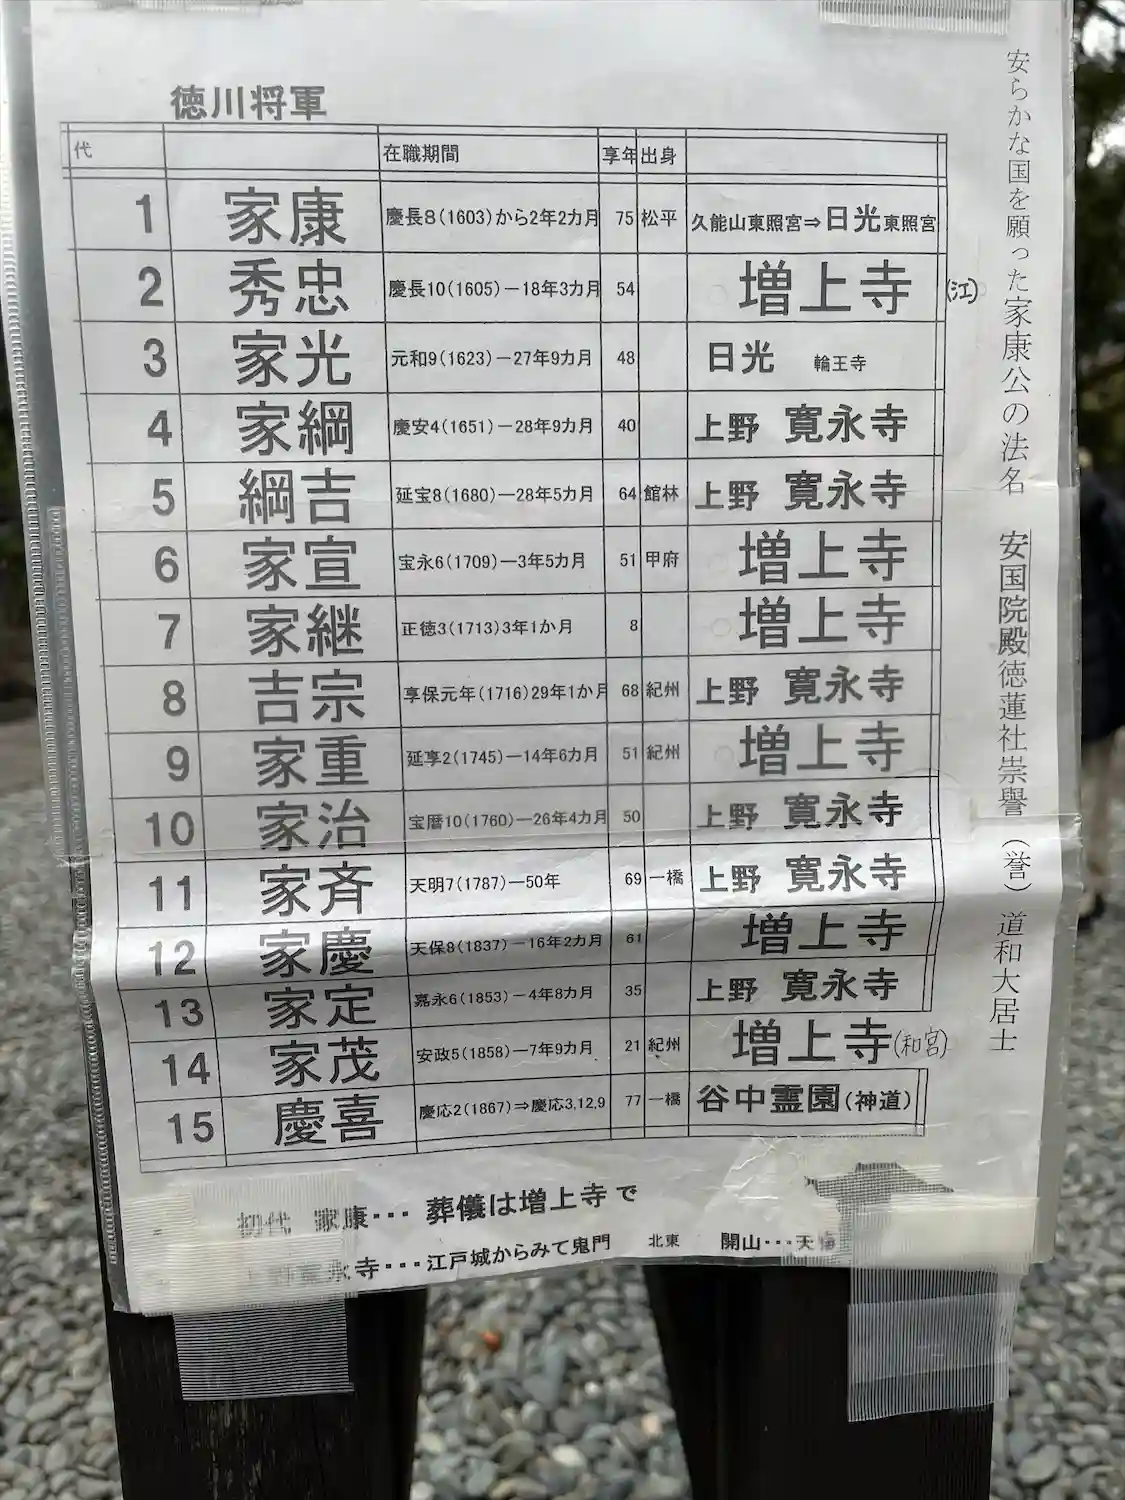 徳川将軍
代 在職期間 享年 出身
1 家康 慶長8(1603)から2年2カ月 75 松平 久能山東照宮⇒日光東照宮
2 秀忠 慶長10(1605)－18年3カ月 54 増上寺 (江)
3 家光 元和9(1623)－27年9カ月 48 日光 輪王寺
4 家綱 慶安4(1651)－28年9カ月 40 上野 寛永寺
5 綱吉 延宝8(1680)－28年5カ月 64 館林 上野 寛永寺
6 家宣 宝永6(1709)―3年5カ月 51 甲府 増上寺
7 家継 正徳3(1713)3年1か月 8 増上寺
8 吉宗 享保元年(1716)29年1か月 68 紀州 上野 寛永寺
9 家重 延享2(1745)－14年6カ月 51 紀州 増上寺
10 家治 宝暦10(1760)－26年4カ月 50 上野 寛永寺
11 家斉 天明7(1787)―50年 69 一橋 上野 寛永寺
12 家慶 天保8(1837)－16年2カ月 61 増上寺
13 家定 嘉永6(1853)－4年8カ月 35 上野 寛永寺
14 家茂 安政5(1858)―7年9カ月 21 紀州 増上寺 (和宮)
15 慶喜 慶応2(1867)⇒慶応3,12,9 77 一橋 谷中霊園(神道)
初代 家康･･･ 葬儀は増上寺で
上野寛永寺･･･江戸城からみて鬼門 北東 開山･･･天海
安らかな国を願った家康公の法名 安国院殿徳蓮社崇譽(誉)道和大居士